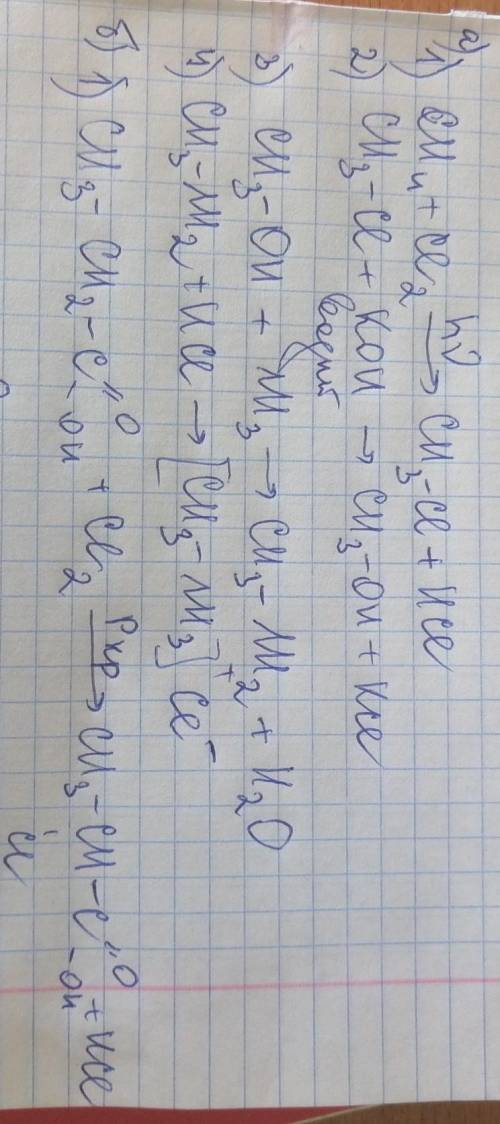 а) 1) CH4 + Cl2 hν→ CH3-Cl + HCl
2) CH3-Cl + KOH → CH3-OH + KCl
3) CH3-OH + NH3 → CH3-NH2 + H2O
4) CH3-NH2 + HCl → [CH3-NH3]+ Cl-
б) 1) CH3-CH2-C=O-OH + Cl2 Pкр→ CH3-CH-C=O-OH + HCl
Cl